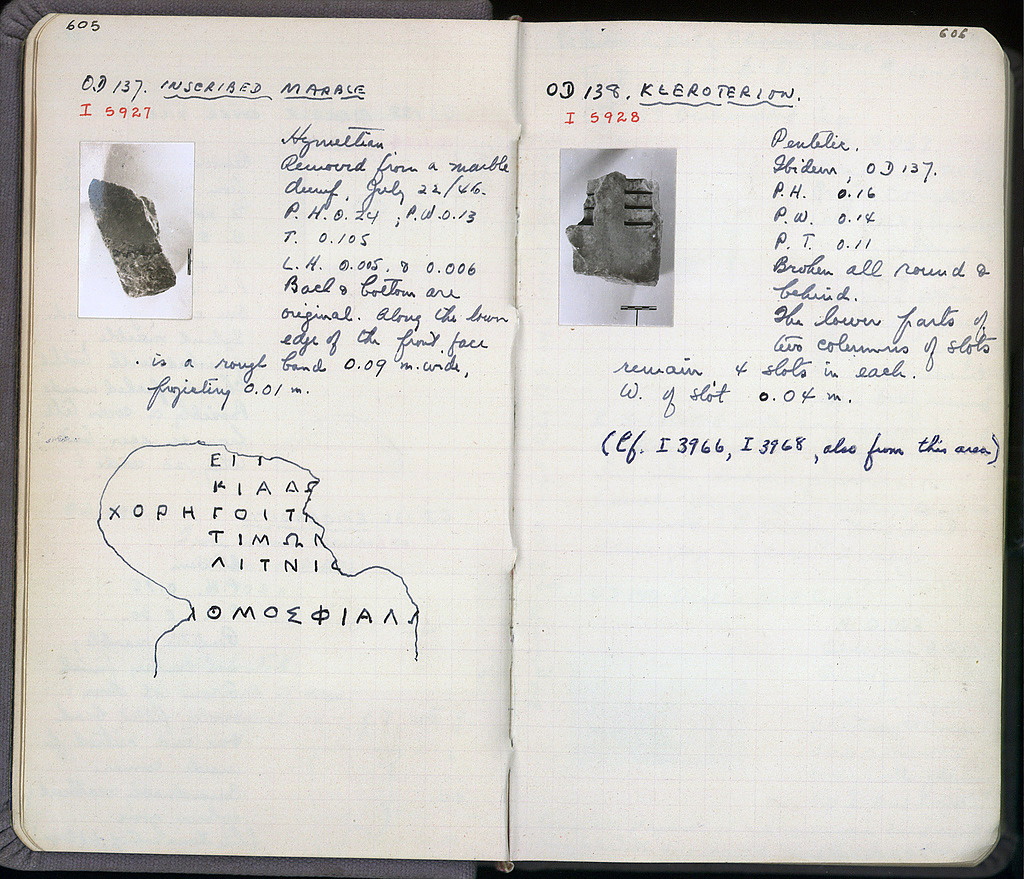 605
OD 137. INSCRIBED MARBLE
I 5927
Hymettian.
Removed from a marble
dump, July 22/46.
P.H. 0.24 ; P.W. 0.13
T. 0.105
L.H. 0.005 & 0.006
Back & bottom are
original. Along the lower
edge of the front face
is a rough band 0.09 m. wide,
projecting 0.01 m.
ΕΙΤ
ΚΙΑΔΩ
ΧΟΡΗΓΟΙΤ
ΤΙΜΩΝ
ΛΙΤΝΙΟ
ΛΘΜΟΣΦΙΑΛΛ
606
OD 138. KLEROTERION.
I 5928
Pentelic.
Ibidem, OD 137.
P.H. 0.16
P.W. 0.14
P.T. 0.11
Broken all round &
behind.
The lower parts of
two columns of slots
remain 4 slots in each.
W. of slot 0.04 m.
(Cf. I 3966, I 3968, also from this area)